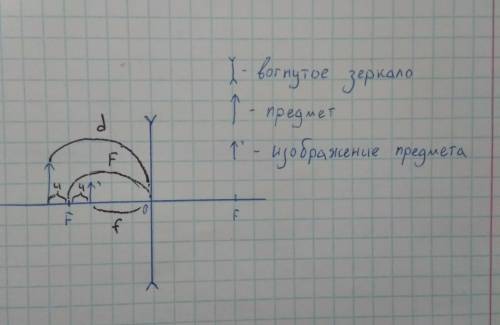 - вогнутое зеркало
- предмет
' - изображение предмета
d
F
4 4 '
F O F
f